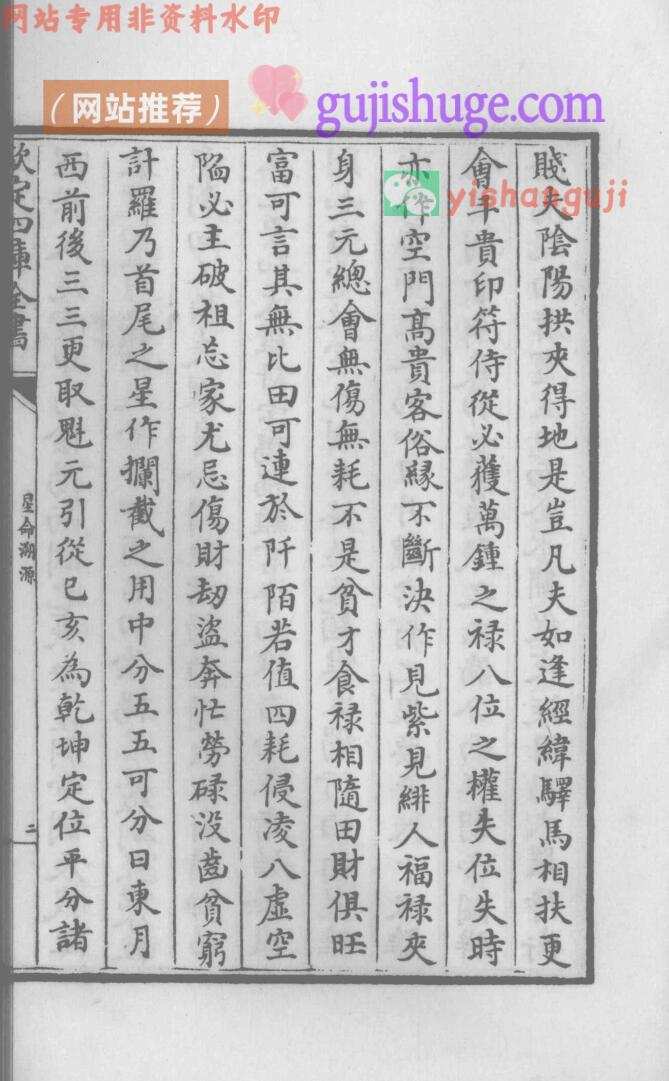 网站专用非资料水印
（网站推荐）
gujishuge.com
yishanguji
賤夫陰陽拱夾得地是豈凡夫如逢經緯驛馬相扶更
會千貴印符侍從必獲萬鍾之禄八位之權失位失時
亦作空門髙貴客俗緣不斷決作見紫見緋人福禄夾
身三元總會無傷無耗不是貧才食禄相隨田財俱旺
富可言其無比田可連於阡陌若值四耗侵凌八虛空
陥必主破祖忘家尤忌傷財劫盜奔忙勞碌没齒貧窮
計羅乃首尾之星作攔截之用中分五五可分日東月
西前後三三更取魁元引從已亥為乾坤定位平分諸
欽定四庫全書
星命溯源
二